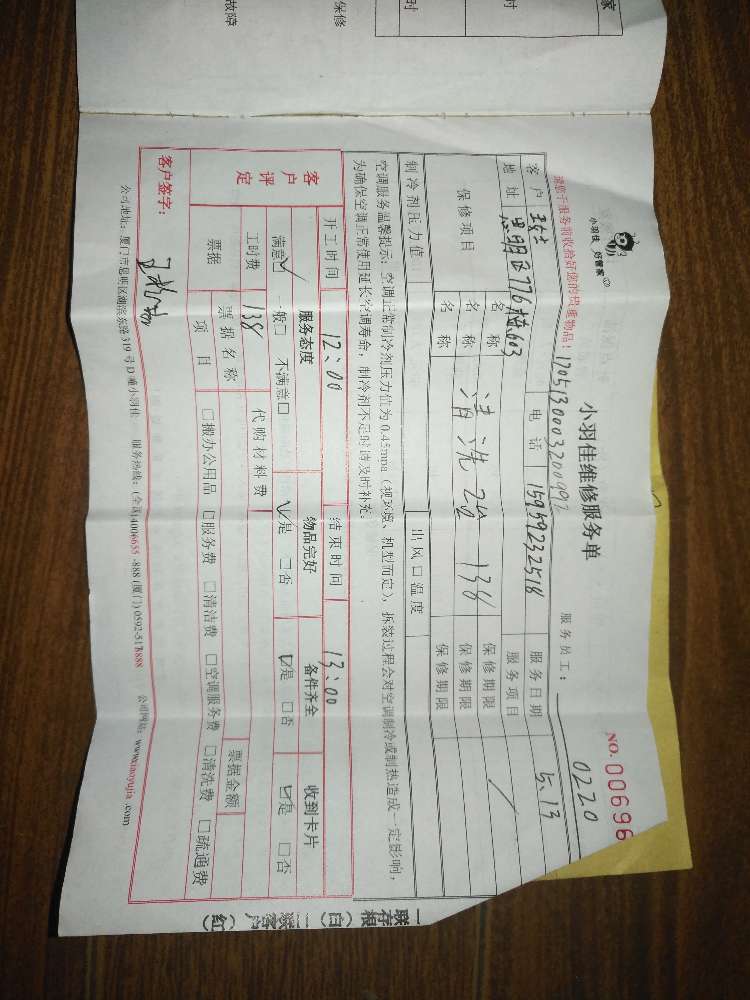 家
时
时
保修
故障
小羽佳 好管家
小羽佳维修服务单
NO. 00696
请您于服务前收拾好您的贵重物品！
1705130003200992
服务员工：
0220
客户
电话
15959232518
服务日期
5.13
地址
思明区776 603
服务项目
保修项目
名称
保修期限
名称
清洗 2台 138
保修期限
名称
保修期限
制冷剂压力值
出风口温度
空调服务温馨提示：空调正常制冷剂压力值为0.45mpa（视环境、机型而定），拆装过程会对空调制冷或制热造成一定影响，
为确保空调正常使用延长空调寿命，制冷剂不足时请及时补充。
开工时间
12:00
结束时间
13:00
客户评定
服务态度
物品完好
备件齐全
收到卡片
满意□ 一般□ 不满意□
□是 □否
□是 □否
□是 □否
工时费
138
代购材料费
票据
票据名称
票据金额
项目
□搬办公用品 □服务费 □清洁费 □空调服务费 □清洗费 □疏通费
客户签字：
公司地址：厦门市思明区湖滨东路319号D栋小羽佳
服务热线：(全国)4006655-888 (厦门) 0592-5178888
公司网站：www.xiaoyujia.com
一联存根（白） 二联客户（红）